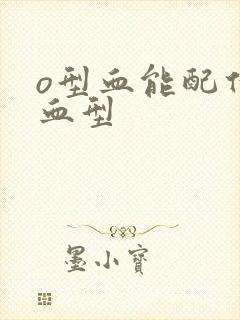 o型血能配
血型
墨小寶